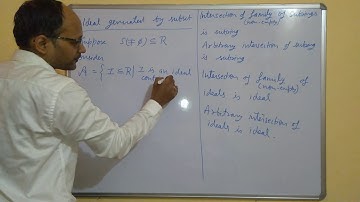 Ideal generated by subset
Suppose S(≠ϕ) ⊆ R
A = { I ⊆ R | I is an ideal
cont
Intersection of family of subrings
(non-empty)
is subring
Arbitrary intersection of subring
is subring
Intersection of family of
(non-empty)
ideals is ideal
Arbitrary intersection of
ideals is ideal.